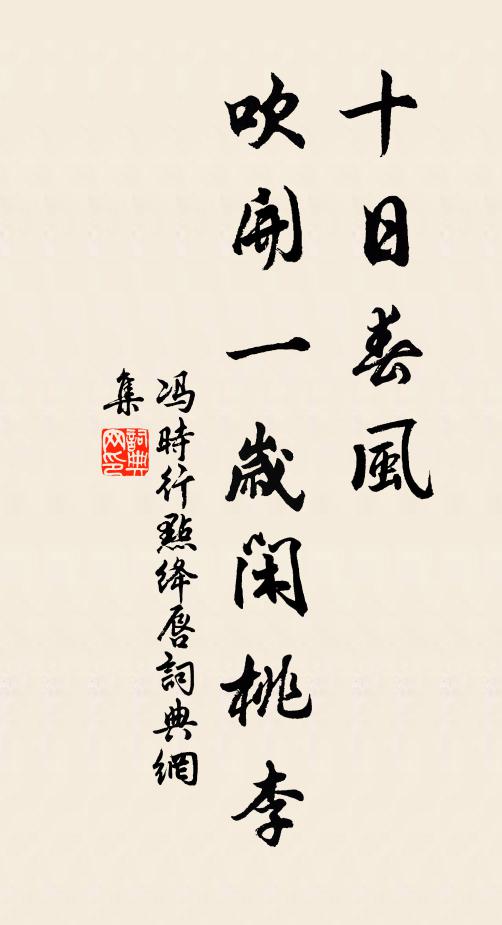 十日春風
吹開一歲閑桃李
冯時行點绛唇詞典網
集
詞典网印